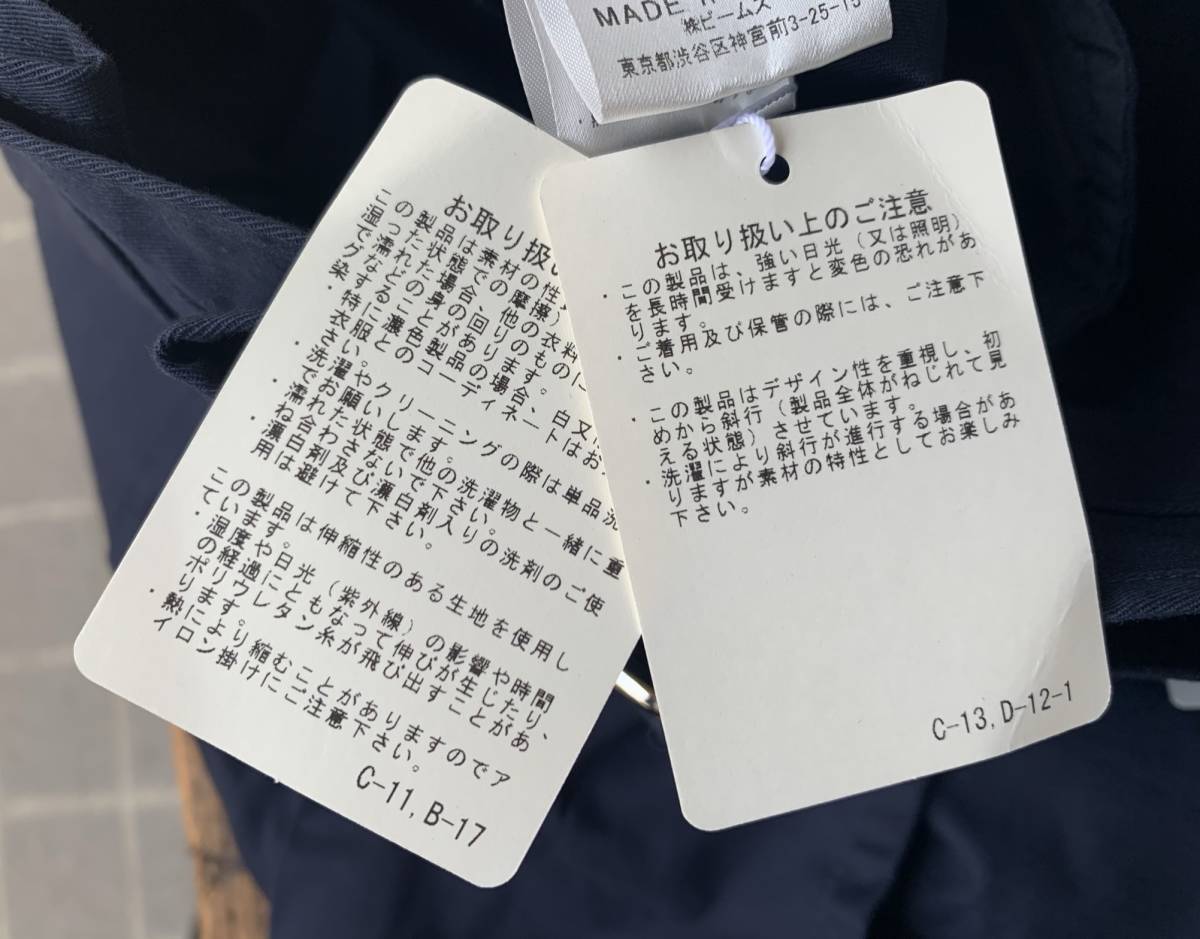 MADE
㈱ビームス
東京都渋谷区神宮前3-25-15
お取り扱い
この製品は素材の性
湿った状態での摩擦）
で濡れた場合、他の衣料
グなどの身の回りのものに
染することがあります。
・特に濃色製品の場合、白又は
衣服とのコーディネートはお
さい。
・洗濯やクリーニングの際は単品洗
でお願いします。
・濡れた状態で他の洗濯物と一緒に重
ね合わさないで下さい。
・漂白剤及び漂白剤入りの洗剤のご使
用は避けて下さい。
この製品は伸縮性のある生地を使用し
ています。
・湿度や日光（紫外線）の影響や時間
の経過にともなって伸びが生じたり、
ポリウレタン糸が飛び出すことがあ
ります。
・熱により縮むことがありますのでア
イロン掛けにご注意下さい。
C-11,B-17
お取り扱い上のご注意
・この製品は、強い日光（又は照明）
を長時間受けますと変色の恐れがあ
ります。
・ご着用及び保管の際には、ご注意下
さい。
・この製品はデザイン性を重視し、初
めから斜行（製品全体がねじれて見
える状態）させています。
・洗濯により斜行が進行する場合があ
りますが素材の特性としてお楽しみ
下さい。
C-13,D-12-1